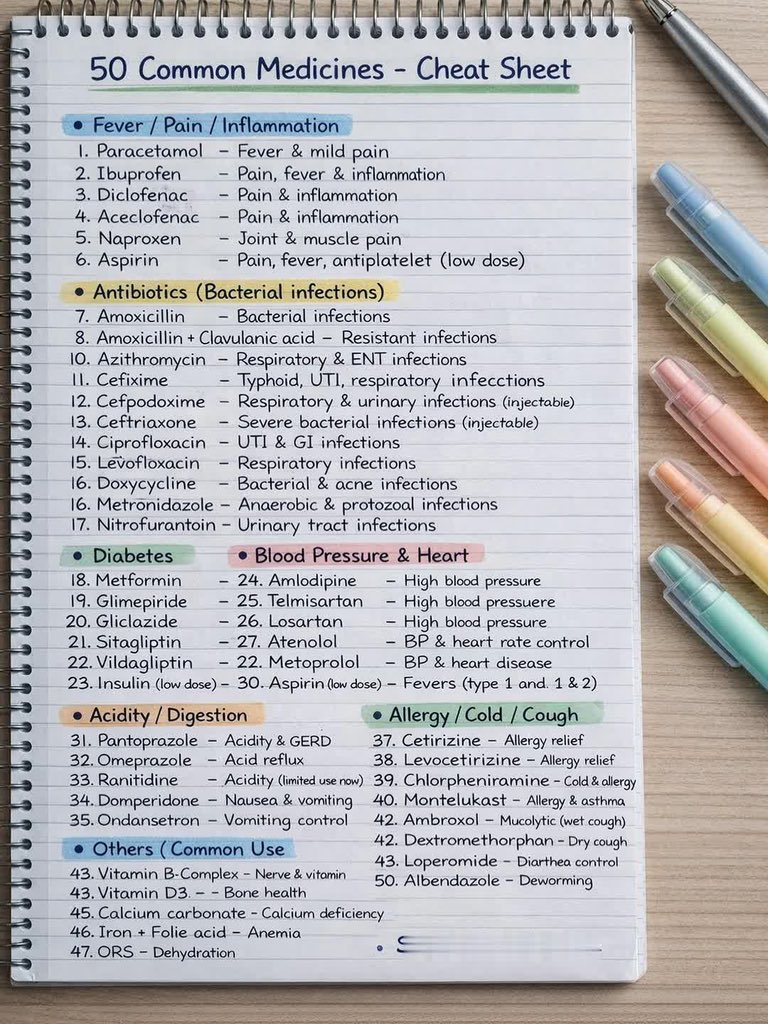 50 Common Medicines – Cheat Sheet
• Fever / Pain / Inflammation
1. Paracetamol – Fever & mild pain
2. Ibuprofen – Pain, fever & inflammation
3. Diclofenac – Pain & inflammation
4. Aceclofenac – Pain & inflammation
5. Naproxen – Joint & muscle pain
6. Aspirin – Pain, fever, antiplatelet (low dose)
• Antibiotics (Bacterial infections)
7. Amoxicillin – Bacterial infections
8. Amoxicillin + Clavulanic acid – Resistant infections
10. Azithromycin – Respiratory & ENT infections
11. Cefixime – Typhoid, UTI, respiratory infecctions
12. Cefpodoxime – Respiratory & urinary infections (injectable)
13. Ceftriaxone – Severe bacterial infections (injectable)
14. Ciprofloxacin – UTI & GI infections
15. Levofloxacin – Respiratory infections
16. Doxycycline – Bacterial & acne infections
16. Metronidazole – Anaerobic & protozoal infections
17. Nitrofurantoin – Urinary tract infections
• Diabetes
18. Metformin –
19. Glimepiride –
20. Gliclazide –
21. Sitagliptin –
22. Vildagliptin –
23. Insulin (low dose) –
• Blood Pressure & Heart
24. Amlodipine – High blood pressure
25. Telmisartan – High blood pressuere
26. Losartan – High blood pressure
27. Atenolol – BP & heart rate control
22. Metoprolol – BP & heart disease
30. Aspirin (low dose) – Fevers (type 1 and. 1 & 2)
• Acidity / Digestion
31. Pantoprazole – Acidity & GERD
32. Omeprazole – Acid reflux
33. Ranitidine – Acidity (limited use now)
34. Domperidone – Nausea & vomiting
35. Ondansetron – Vomiting control
• Others ( Common Use
43. Vitamin B-Complex – Nerve & vitamin
43. Vitamin D3. – – Bone health
45. Calcium carbonate – Calcium deficiency
46. Iron + Folie acid – Anemia
47. ORS – Dehydration
• Allergy / Cold / Cough
37. Cetirizine – Allergy relief
38. Levocetirizine – Allergy relief
39. Chlorpheniramine – Cold & allergy
40. Montelukast – Allergy & asthma
42. Ambroxol – Mucolytic (wet cough)
42. Dextromethorphan – Dry cough
43. Loperomide – Diarthea control
50. Albendazole – Deworming